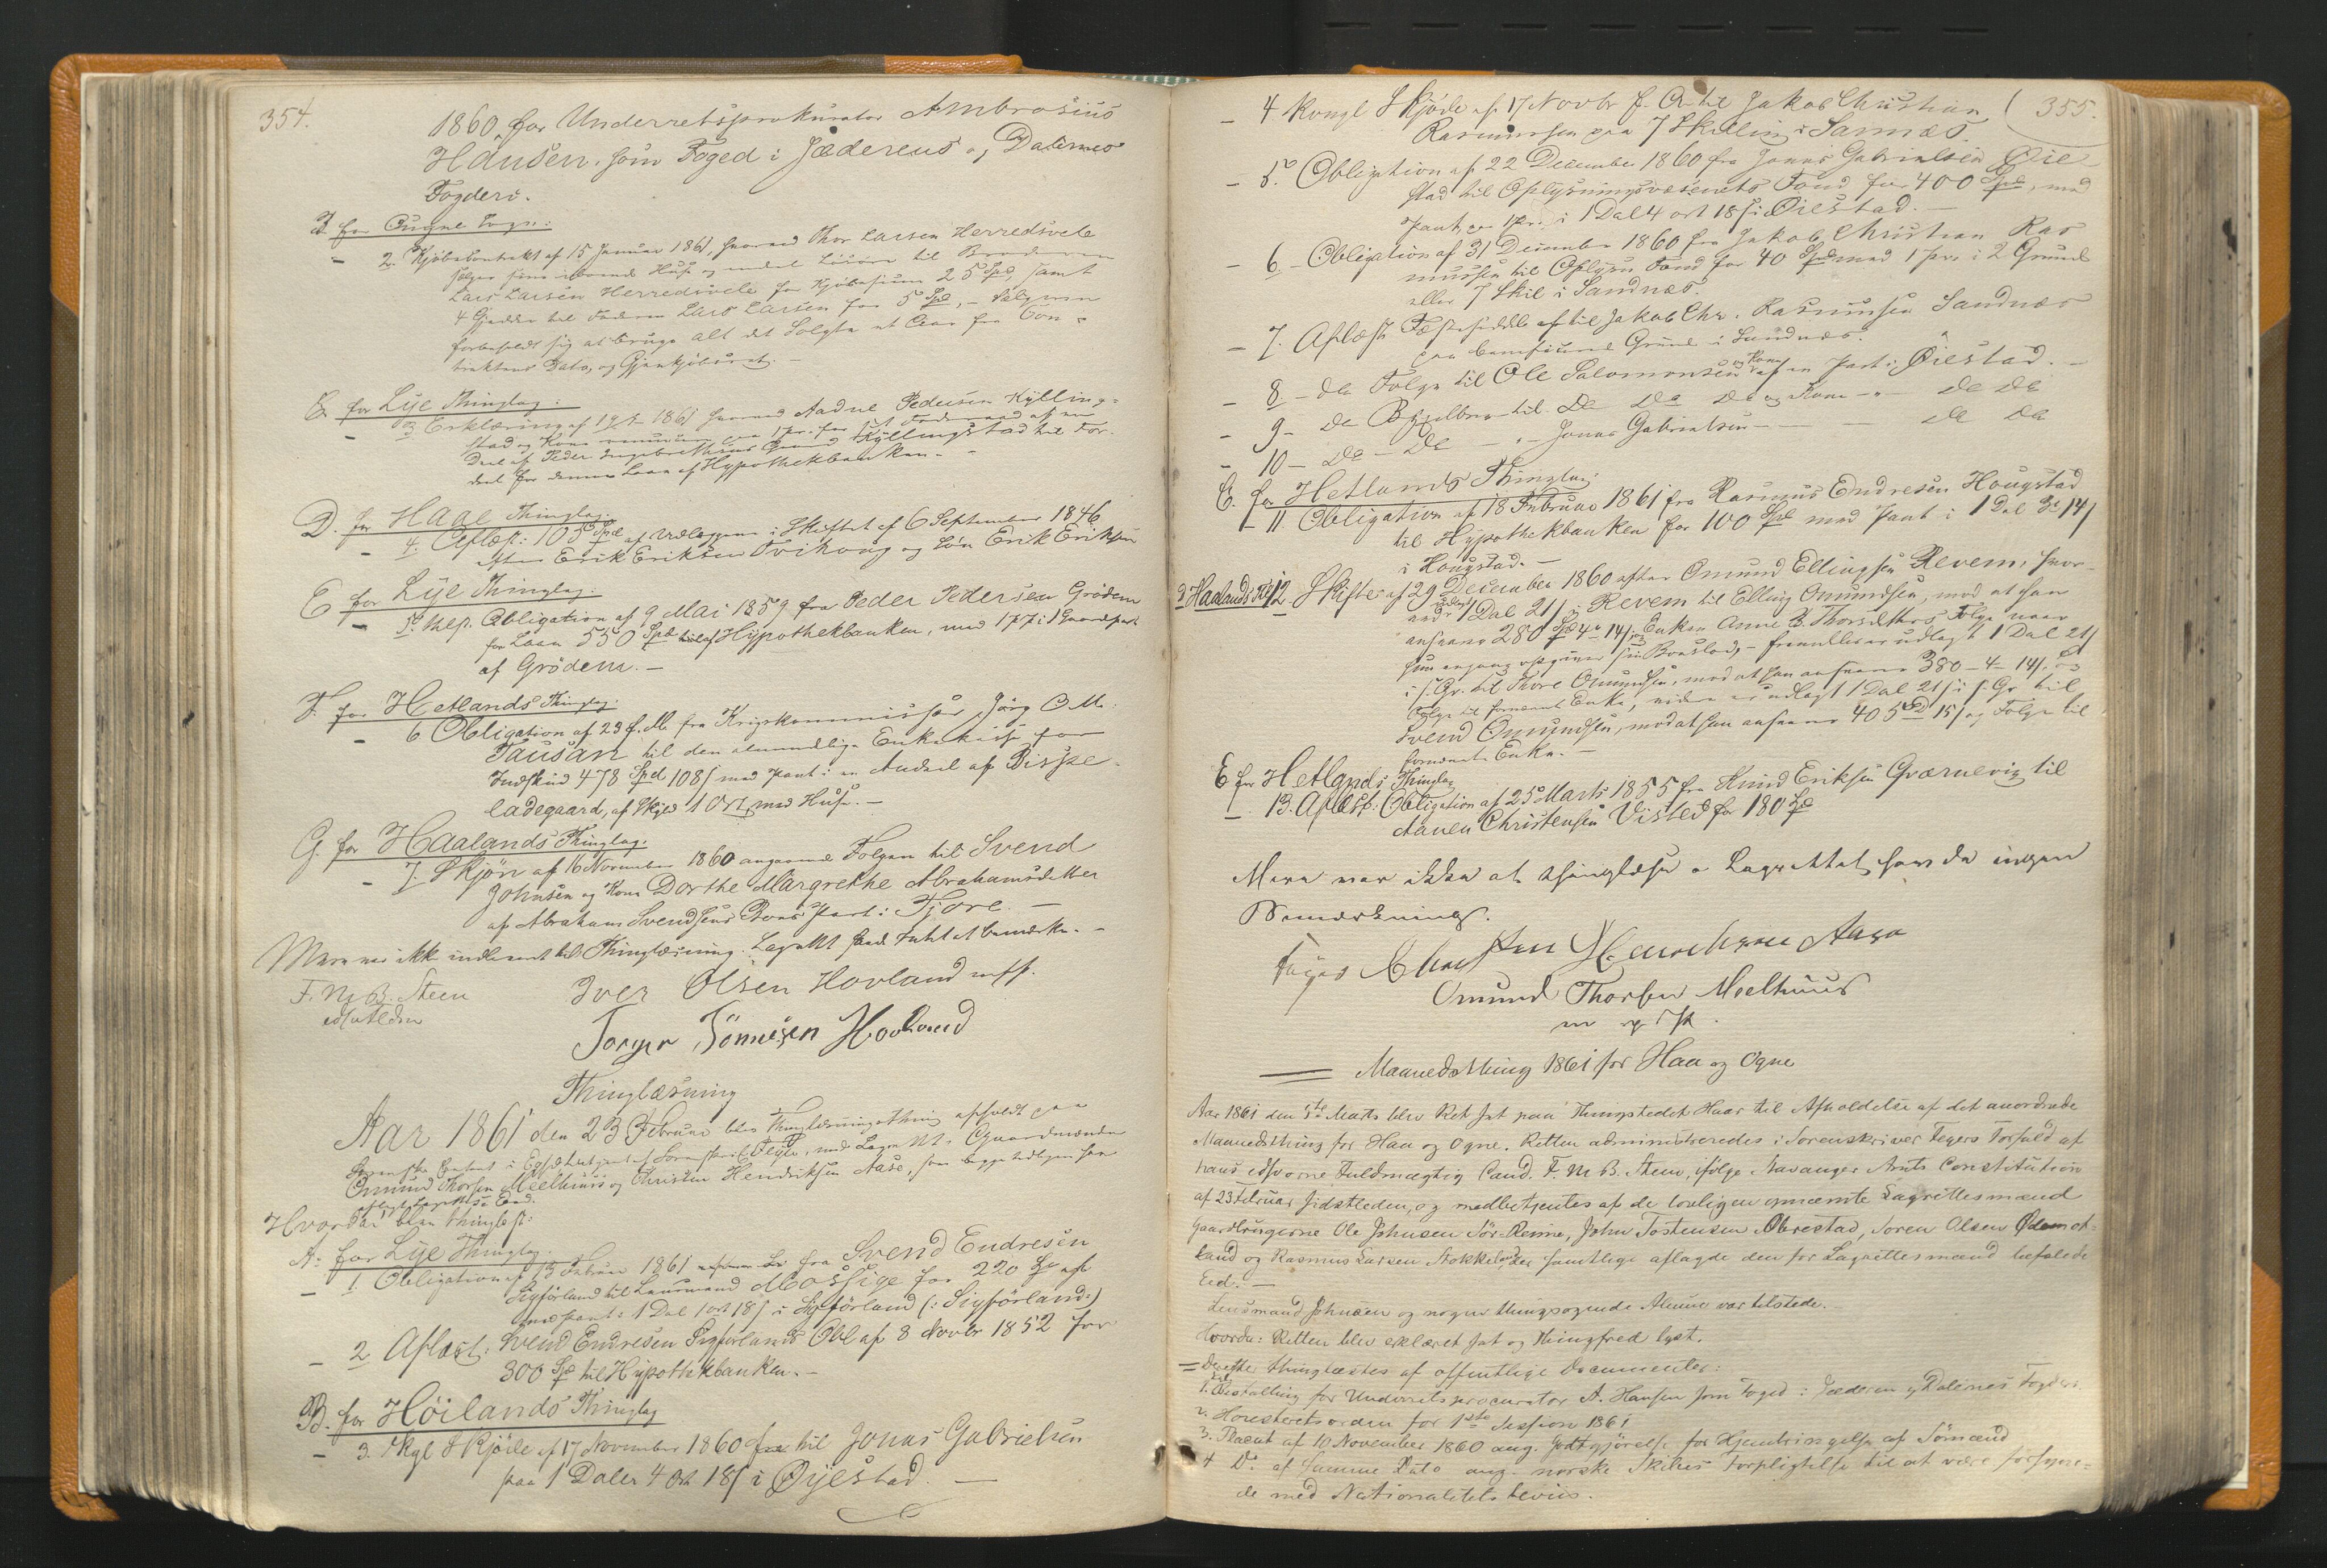 354.
1860, for Underretsprokurator Ambrosius
Hansen, som Foged i Jæderens og Dalernes
Fogderi.
B for Ougne Sogn:
- 2. Kjøbekontrakt af 15 Januar 1861, hvorved Thor Larsen Herredsvele
sælger sine iboende Huse og andet Løsøre til Broderen
Lars Larsen Herredsvele for Kjøbesum 25 Spd, samt
4 Gjeder til Faderen Lars Larsen for 5 Spd, - Sælgeren
forbeholdt sig at bruge alt det Solgte et Aar fra Con-
traktens Dato, og Gjenkjøbsret. -
C. for Lye Thinglag:
- 3 Erklæring af 1861 hvorved Aadne Pedersen Kylling-
stad og Kone 1 Pr. for sit Foderaad af en
Deel af Peder Ingebrethsens Kyllingstad til For-
deel for dennes Laan af Hypothekbanken. -
D. for Haae Thinglag.
- 4. Aflæst: 105 Spd af Udlæggene i Skiftet af 6 September 1846
efter Erik Eriksen Tvihoug og Søn Erik Eriksen
E for Lye Thinglag.
- 5. Rep. Obligation af 9 Mai 1859 fra Peder Pedersen Grødem
for Laan 550 Spd til Hypothekbanken, med 1 Pr i 1 Gaardpart
af Grødem. -
F. for Hetlands Thinglag.
- 6 Obligation af 23 f. M. fra Krigskommissær Jørg O M:
Tausan til den almindelige Enkekasse for
Indskud 478 Spd 108 s med Pant i en Andeel af Bispe-
ladegaard, af Skyld 1 Ort, med Huse. -
G. for Haalands Thinglag.
- 7. Skjøn af 16 November 1860 angaaende Folgen til Svend
Johnsen og Kone Dorthe Margrethe Abrahamsdatter
af Abraham Svendsens Part i Tjore. -
Mere var ikke indleveret til Thinglæsning. Lagrettet havde Intet at bemærke. -
F. M. B. Steen
Iver Olsen Hovland mfP.
Torger Tønnesen Hovland
Thinglæsning
Aar 1861 den 23 Februar blev Thinglæsningsthing afholdt paa
i Egsø betjent af Sorenskriver Feyer, med Lagrettet Gaardmændene
Omund Thorsen Meelhuus og Christen Hendriksen Aase, som begge
aflagt Lagrettes Eed.
Hvorda blev thinglæst:
A: for Lye Thinglag.
- 1. Obligation af 13 Februar 1861 fra Svend Endresen
Sigførland til Lensmand Mossige for 220 Spd
med Pant i 1 Dal 1 ort 18 s i Sigførland (: Sigførland:)
- 2 Aflæst: Svend Endresen Sigførlands Obl af 8 Novbr 1852 for
300 Spd til Hypothekbanken. -
B. for Høilands Thinglag
- 3. Kgl Skjøde af 17 November 1860 til Jonas Gabrielsen
paa 1 Daler 4 Ort 18 s i Øyestad. -
355.
- 4 Kongl Skjøde af 17 Novbr f. A. til Jakob Christian
Rasmussen paa 7 Skilling i Sannæs.
- 5. Obligation af 22 December 1860 fra Jonas Gabrielsen Øie
stad til Oplysningsvæsenets Fond for 400 Spd, med
Pant, 1 Pr. i 1 Dal 4 ort 18 s i Øiestad. -
- 6 - Obligation af 31 December 1860 fra Jakob Christian Ras
mussen til Oplysn Fond for 40 Spd med 1 Pr. i 2 Grunde
eller 7 Skil i Sandnæs.
- 7. Aflæst Fæsteseddel af til Jakob Chr. Rasmussen Sandnæs
paa Grund i Sandnæs.
- 8 - do Folge til Ole Salomonsen og Kone af en Part i Øiestad. -
- 9 - do Bygselbrev til Do Do Do og Kone - " - do do
- 10 - do - do - " - Jonas Gabrielsen - - - do do
C. for Hetlands Thinglag.
- 11. Obligation af 18 Februar 1861 fra Rasmus Endresen Hougstad
til Hypothekbanken for 100 Spd med Pant i 1 Dal 3 14 s
i Hougstad. -
D Haalands 12. Skifte af 29 December 1860 efter Omund Ellingsen Revem, hvor-
ved udlagt 1 Dal 21 s i Revem til Elling Omundsen, mod at han
ansvarer 280 Spd 4 14 s og Enken Anne B. Thorsdatters Folge naar
hun engang opgiver sin Boeslod, - fremdeles er udlagt 1 Dal 21 s
i s. Gr. til Thore Omundsen, mod at han ansvarer 380 - 4 - 14 s. og
Folge til fornævnte Enke, videre er udlagt 1 Dal 21 s i s. Gr til
Svend Omundsen, mod at han ansvarer 405 15 s og Folge til
fornævnte Enke. -
E for Hetlands Thinglag
- 13. Aflæst: Obligation af 25 Marts 1855 fra Knud Eriksen Gvernevig til
Aanen Christensen Visted for 180 Spd
Mere var ikke at thinglæse. Lagrettet havde ingen
Bemærkning.
Feyer Christen Hendriksen Aase
Omund Thorsen Meelhuus
m p P.
Maanedsthing 1861 for Haa og Ogne
Aar 1861 den 5te Marts blev Ret sat paa Thingstedet Haar til Afholdelse af det anordnede
Maanedsthing for Haa og Ogne. Retten administreredes i Sorenskriver Feyers Forfald af
hans edsvorne Fuldmægtig Cand. F. M. B. Steen, ifølge Stavanger Amts Constitution
af 23 Februar sidstleden, og medbetjentes af de lovligen opnævnte Lagrettesmænd
Gaardbrugerne Ole Johnsen Sør-Reime, John Tostensen Obrestad, Søren Olsen Ødemot-
land og Rasmus Larsen Stokkeland, der samtlige aflagde den for Lagrettesmænd befalede
Eed. -
Lensmand Johnsen og nogen thingsøgende Almue var tilstede.
Hvorda: Retten blev erklæret sat og Thingfred lyst.
= Derefter thinglæstes af offentlige Documenter:
1. Bestalling for Underretsprocurator A. Hansen som Foged i Jæderen og Dalernes Fogderi.
2. Høiesteretsorden for 1ste Session 1861
3. Placat af 10 November 1860 ang. Godtgjørelse for Hjembringelse af Sømænd
4 Do. af samme Dato ang. norske Skibes Forpligtelse til at være forsyne-
de med Nationalitets beviis.